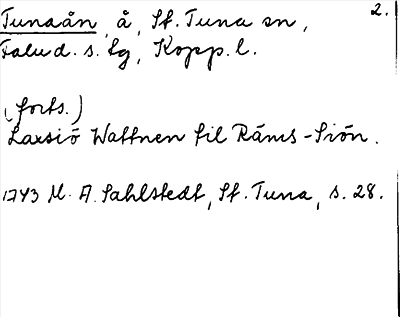 2.
Tunaån, å, St. Tuna sn,
Falu d. s. lg, Kopp. l.
(forts.)
Laxsiö Wattnen til Räms-Siön.
1743 M. A. Sahlstedt, St. Tuna, s. 28.